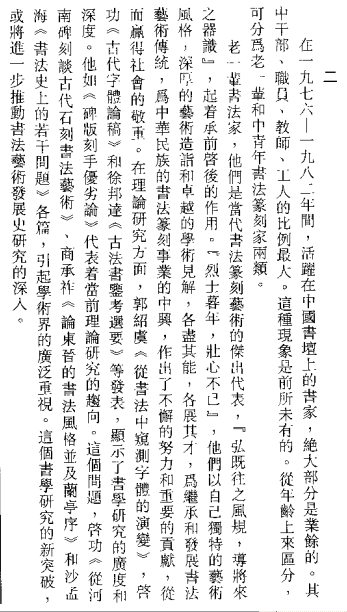 二
在一九七六—一九八二年間，活躍在中國書壇上的書家，絕大部分是業餘的。其
中干部、職員、教師、工人的比例最大。這種現象是前所未有的。從年齡上來區分，
可分爲老一輩和中青年書法篆刻家兩類。
老一輩書法家，他們是當代書法篆刻藝術的傑出代表，『弘既往之風規，導將來
之器識』，起着承前啓後的作用。『烈士暮年，壯心不已』，他們以自己獨特的藝術
風格，深厚的藝術造詣和卓越的學術見解，各盡其能，各展其才，爲繼承和發展書法
藝術傳統，爲中華民族的書法篆刻事業的中興，作出了不懈的努力和重要的貢獻，從
而贏得社會的敬重。在理論研究方面，郭紹虞《從書法中窺測字體的演變》，啓
功《古代字體論稿》和徐邦達《古法書鑒考選要》等發表，顯示了書學研究的廣度和
深度。他如《碑版刻手優劣論》代表着當前理論研究的趨向。這個問題，啓功《從河
南碑刻談古代石刻書法藝術》、商承祚《論東晉的書法風格並及蘭亭序》和沙孟
海《書法史上的若干問題》各篇，引起學術界的廣泛重視。這個書學研究的新突破，
或將進一步推動書法藝術發展史研究的深入。